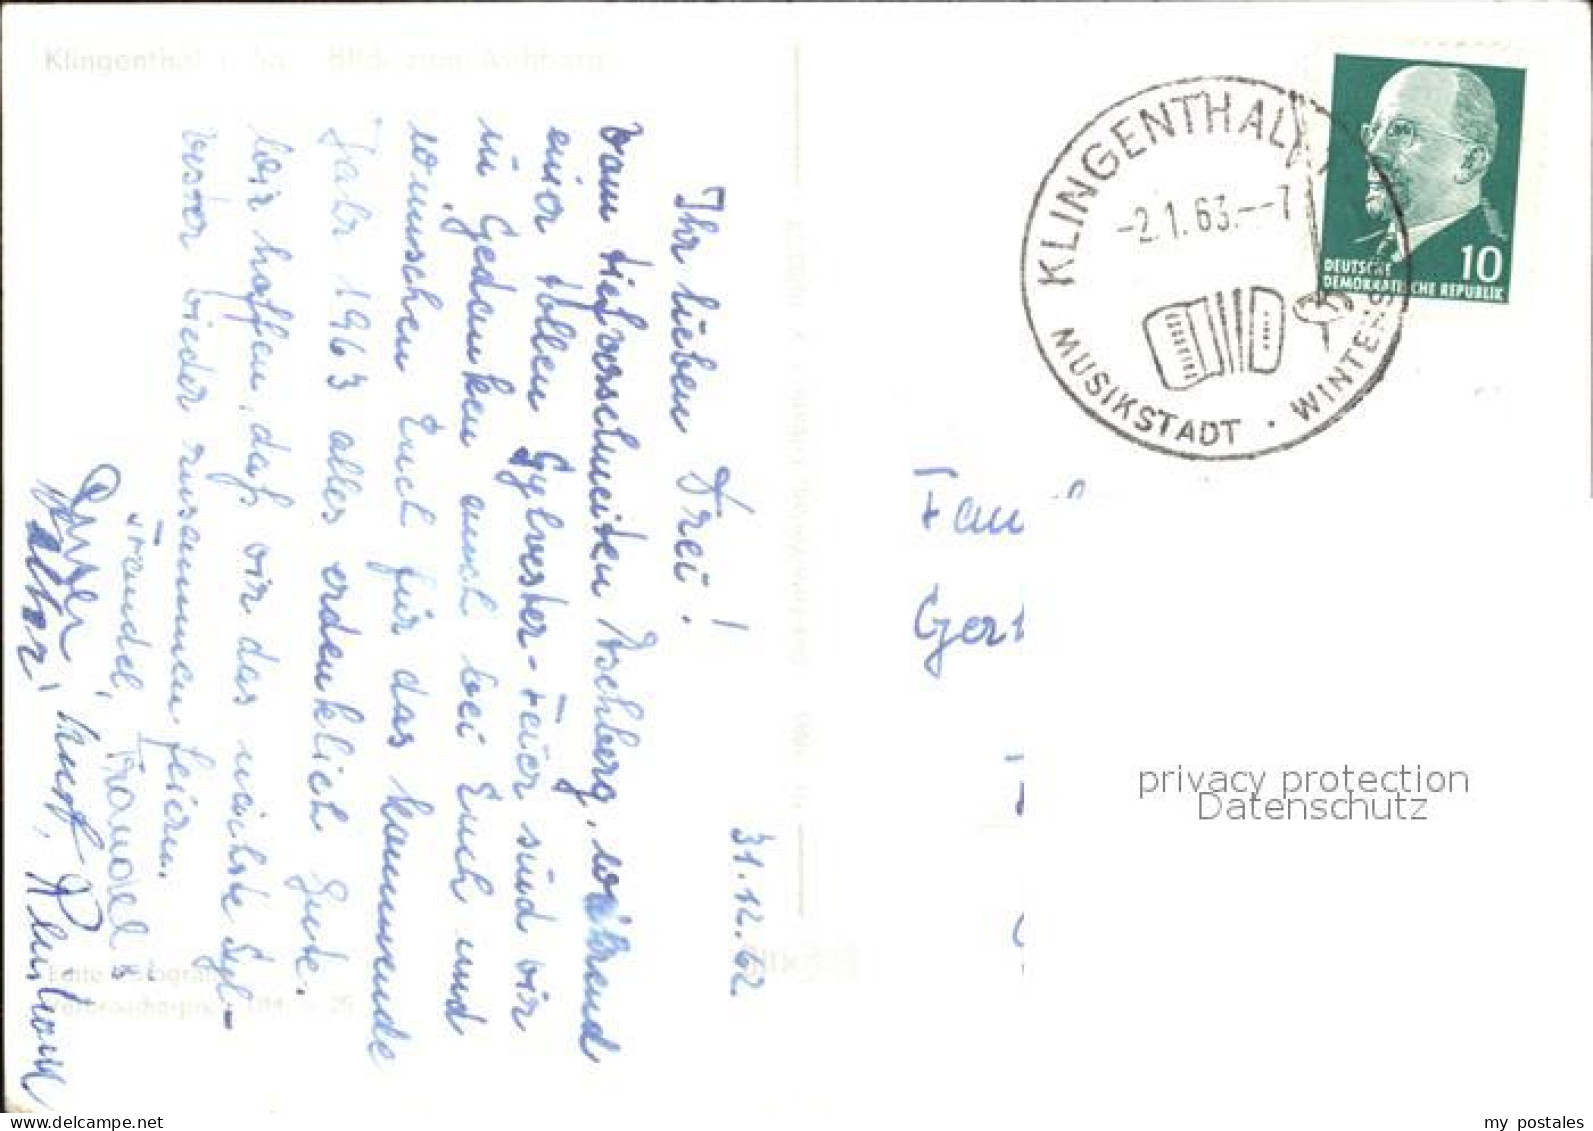 Klingenthal i. Sa. Blick zum Aschberg
31.12.62
Ihr lieben Drei!
Vom tiefverschneiten Aschberg, während
einer tollen Sylvester-Feier sind wir
in Gedanken auch bei Euch und
wünschen Euch für das kommende
Jahr 1963 alles erdenklich Gute.
Wir hoffen, daß wir das nächste Syl-
vester wieder zusammen feiern.
Echte Fotografie
Verbraucherpreis DM
KLINGENTHAL
-2.1.63.--7
MUSIKSTADT · WINTERS
10
DEUTSCHE
DEMOKRATISCHE REPUBLIK
Fam
Gert
privacy protection
Datenschutz
my postales